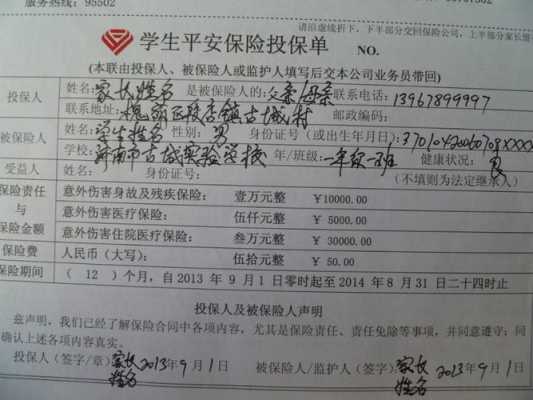 服务热线：95502
请沿虚线折下，下半部分交回保险公司，上半部分家长留
学生平安保险投保单 NO.
(本联由投保人、被保险人或监护人填写后交本公司业务员带回)
投保人 姓名：家长姓名 是被保险人的：父亲/母亲 联系电话：13967899997
联系地址：槐荫区段店镇古城村 邮政编码：
被保险人 姓名：学生姓名 性别：男 身份证号（或出生年月日）：
学校：济南市古城实验学校 年/班级：一年级一班 健康状况：良
受益人 姓名： 身份证号： （不填则为法定继承人）
保险责任与保险金额 意外伤害身故及残疾保险： 壹万元整 ￥10000.00
意外伤害医疗保险： 伍仟元整 ￥ 5000.00
意外伤害住院医疗保险： 叁万元整 ￥ 30000.00
保险费 人民币（大写）： 伍拾元整 ￥ 50.00
保险期间 （ 12 ）个月，自 2013 年 9 月 1 日零时起至 2014 年 8 月 31 日二十四时止
投保人及被保险人声明
兹声明，我们已经了解保险合同中各项内容，尤其是保险责任、责任免除等事项，并同意遵守；同
确认上述各项内容真实。
投保人（签字/章）家长姓名 2013年9月1日 被保险人/监护人（签字）家长姓名 2013年9月1日